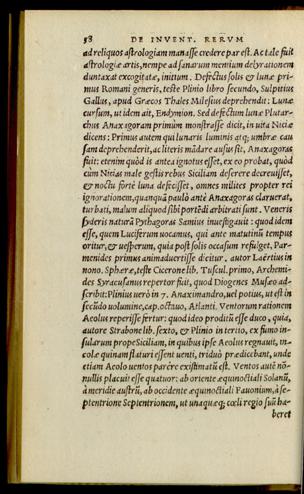 58 DE INVENT. RERVM
ad reliquos astrologiam manasse credere par est. Ac tale fuit
astrologiæ artis, nempe ad sanarum mentium delyrationem
duntaxat excogitatæ, initium. Defectus solis & lunæ pri-
mus Romani generis, teste Plinio libro secundo, Sulpitius
Gallus, apud Græcos Thales Milesius deprehendit: Lunæ
cursum, ut idem ait, Endymion. Sed defectum lunæ Plutar-
chus Anaxagoram primùm monstrasse dicit, in uita Niciæ
dicens: Primus autem qui lunaris luminis atq; umbræ cau
sam deprehenderit, ac literis mādare ausus sit, Anaxagoras
fuit: etenim quòd is antea ignotus esset, ex eo probat, quòd
cùm Nicias male gestis rebus Siciliam deserere decreuisset,
& noctu fortè luna defecisset, omnes milites propter rei
ignorationem, quanquā paulò antè Anaxagoras claruerat,
turbati, malum aliquod sibi portēdi arbitrati sunt. Veneris
syderis naturā Pythagoras Samius inuestigauit: quod idem
esse, quem Luciferum uocamus, qui ante matutinū tempus
oritur, & uesperum, quia post solis occasum refulget, Par-
menides primus animaduertisse dicitur. autor Laërtius in
nono. Sphæræ, teste Cicerone lib. Tuscul. primo, Archime-
des Syracusanus repertor fuit, quod Diogenes Musæo ad-
scribit: Plinius uerò in 7. Anaximandro, uel potius, ut est in
secūdo uolumine, cap. octauo, Atlanti. Ventorum rationem
Aeolus reperisse fertur: quod ideo proditū esse duco, quia,
autore Strabone lib. sexto, & Plinio in tertio, ex fumo in-
sularum prope Siciliam, in quibus ipse Aeolus regnauit, in-
colæ quinam flaturi essent uenti, triduò prædicebant, unde
etiam Aeolo uentos parêre existimatū est. Ventos autē nō-
nullis placuit esse quatuor: ab oriente æquinoctiali Solanū,
à meridie austrū, ab occidente æquinoctiali Fauonium, à se-
ptentrione Septentrionem, ut unaquæq; cœli regio suū ha
beret